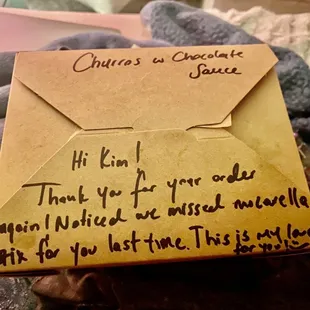 Churros w Chocolate
Sauce
Hi Kim!
Thank you for your order
again! Noticed we missed mozarella
stix for you last time. This is my love
for you!